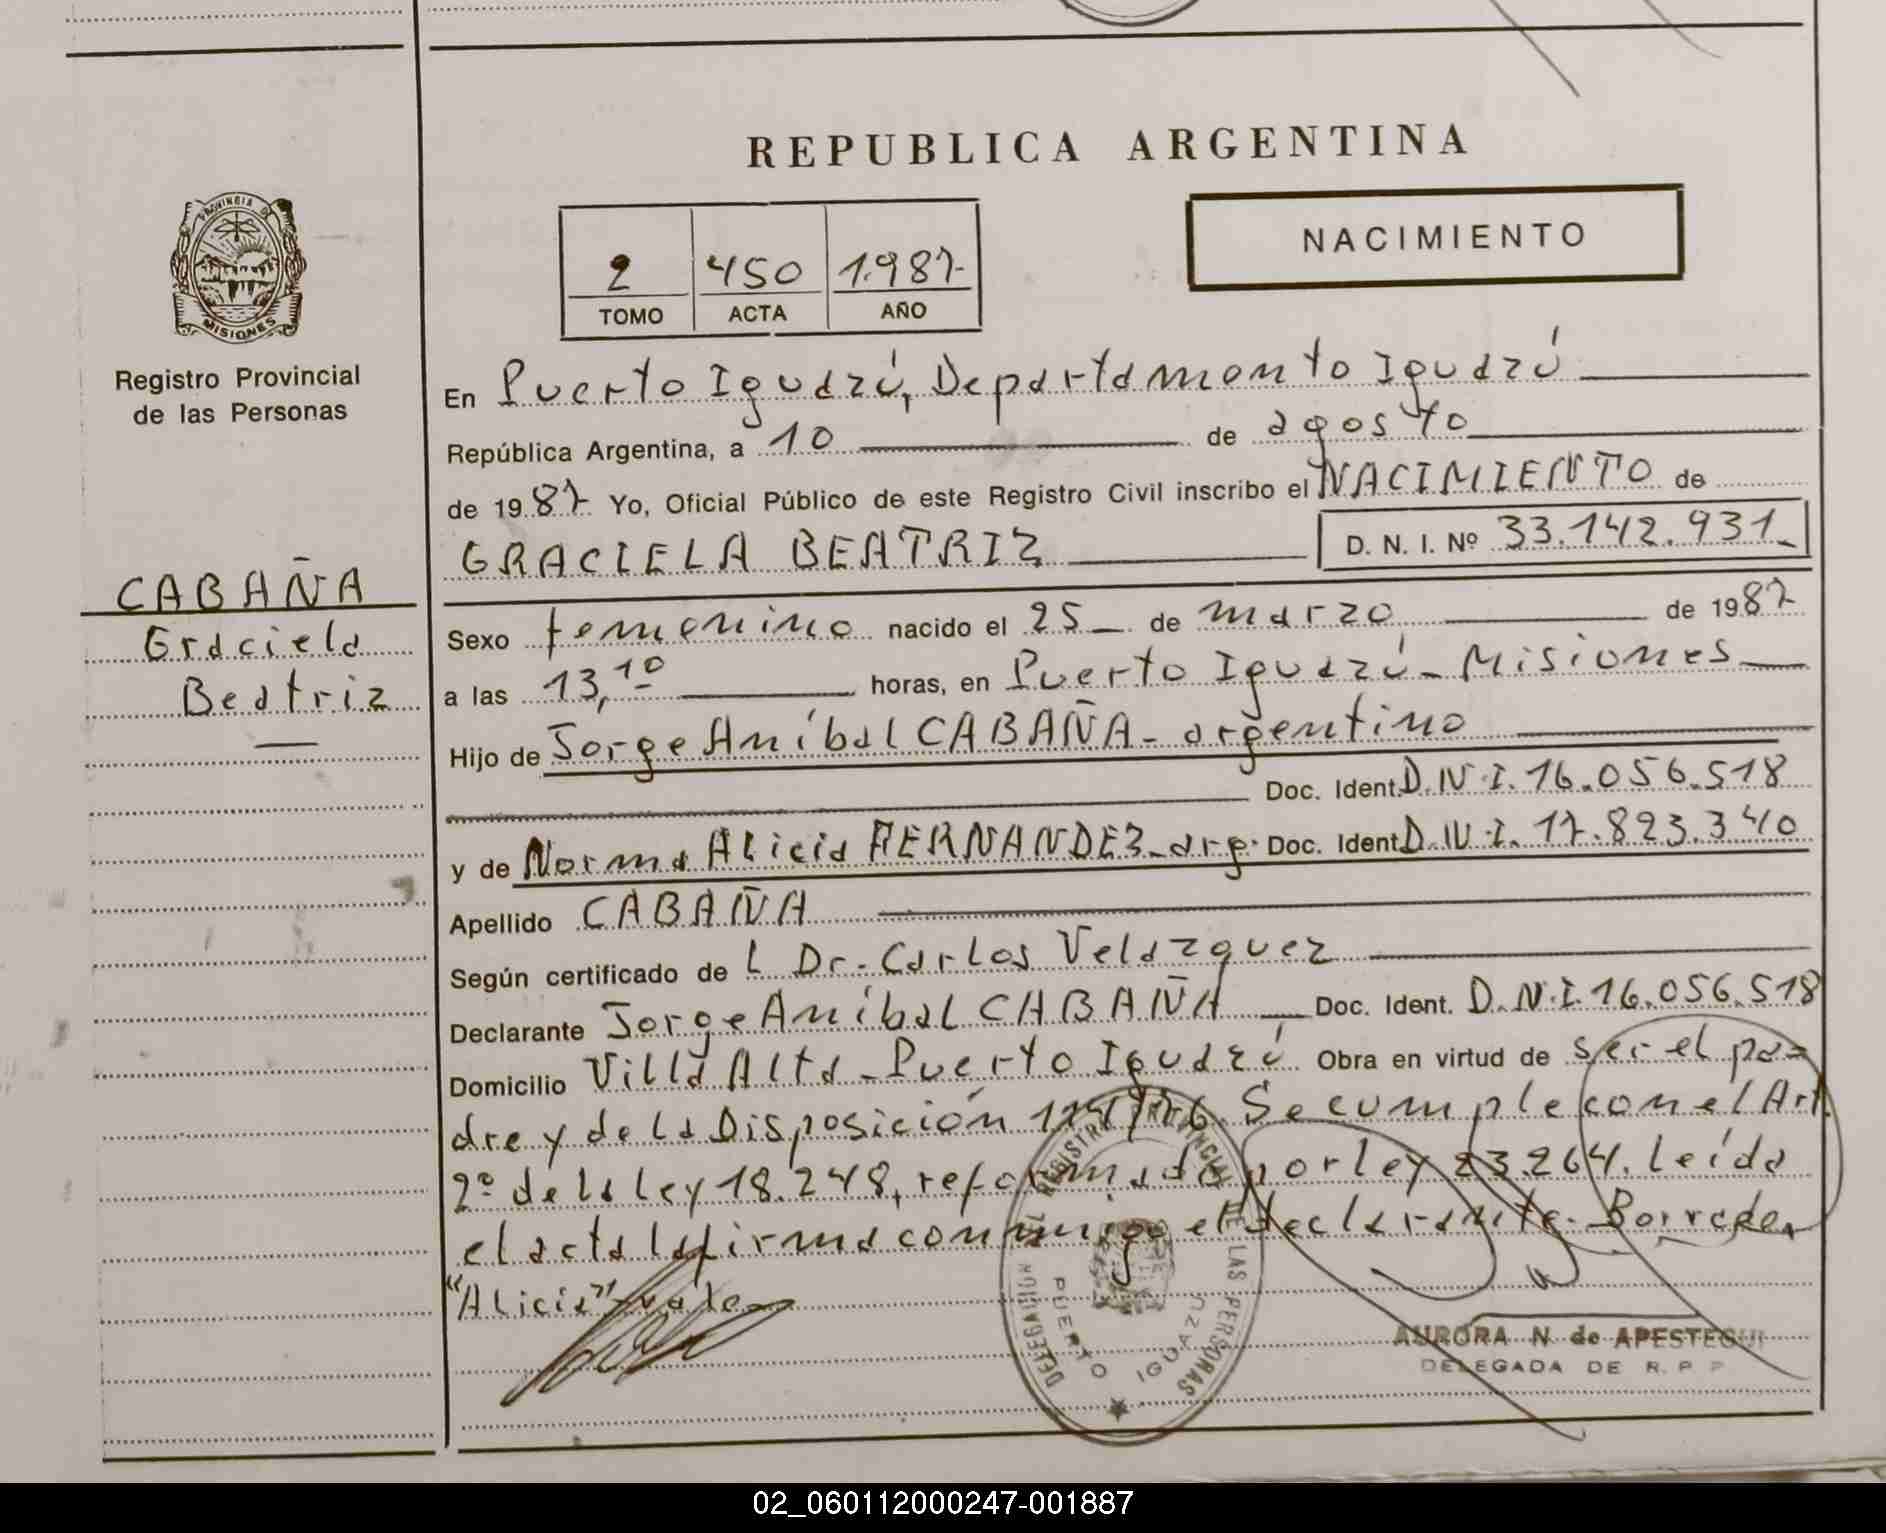 REPUBLICA ARGENTINA
PROVINCIA DE
MISIONES
Registro Provincial
de las Personas
2 450 1.987-
TOMO ACTA AÑO
NACIMIENTO
En Puerto Iguazú, Departamento Iguazú
República Argentina, a 10 de agosto
de 1987 Yo, Oficial Público de este Registro Civil inscribo el NACIMIENTO de
GRACIELA BEATRIZ D. N. I. Nº 33.142.931_
CABAÑA
Graciela
Beatriz
Sexo femenino nacido el 25_ de marzo de 1987
a las 13,10 horas, en Puerto Iguazú_Misiones
Hijo de Jorge Aníbal CABAÑA_argentino
Doc. Ident. D.N.I. 16.056.518
y de Norma Alicia FERNANDEZ_arg. Doc. Ident. D.N.I. 17.823.340
Apellido CABAÑA
Según certificado de L Dr. Carlos Velazquez
Declarante Jorge Aníbal CABAÑA Doc. Ident. D.N.I. 16.056.518
Domicilio Villa Alta_Puerto Iguazú Obra en virtud de ser el pa=
dre y de la Disposición /76. Se cumple con el Art.
2º de la ley 18.248, reformado por ley 23.264. Leída
el acta la firma conmigo el declarante.
"Alicia" vale
DELEGACION DEL REGISTRO PROVINCIAL DE LAS PERSONAS
PUERTO IGUAZU
AURORA N de APESTEGUI
DELEGADA DE R. P. P
02_060112000247-001887